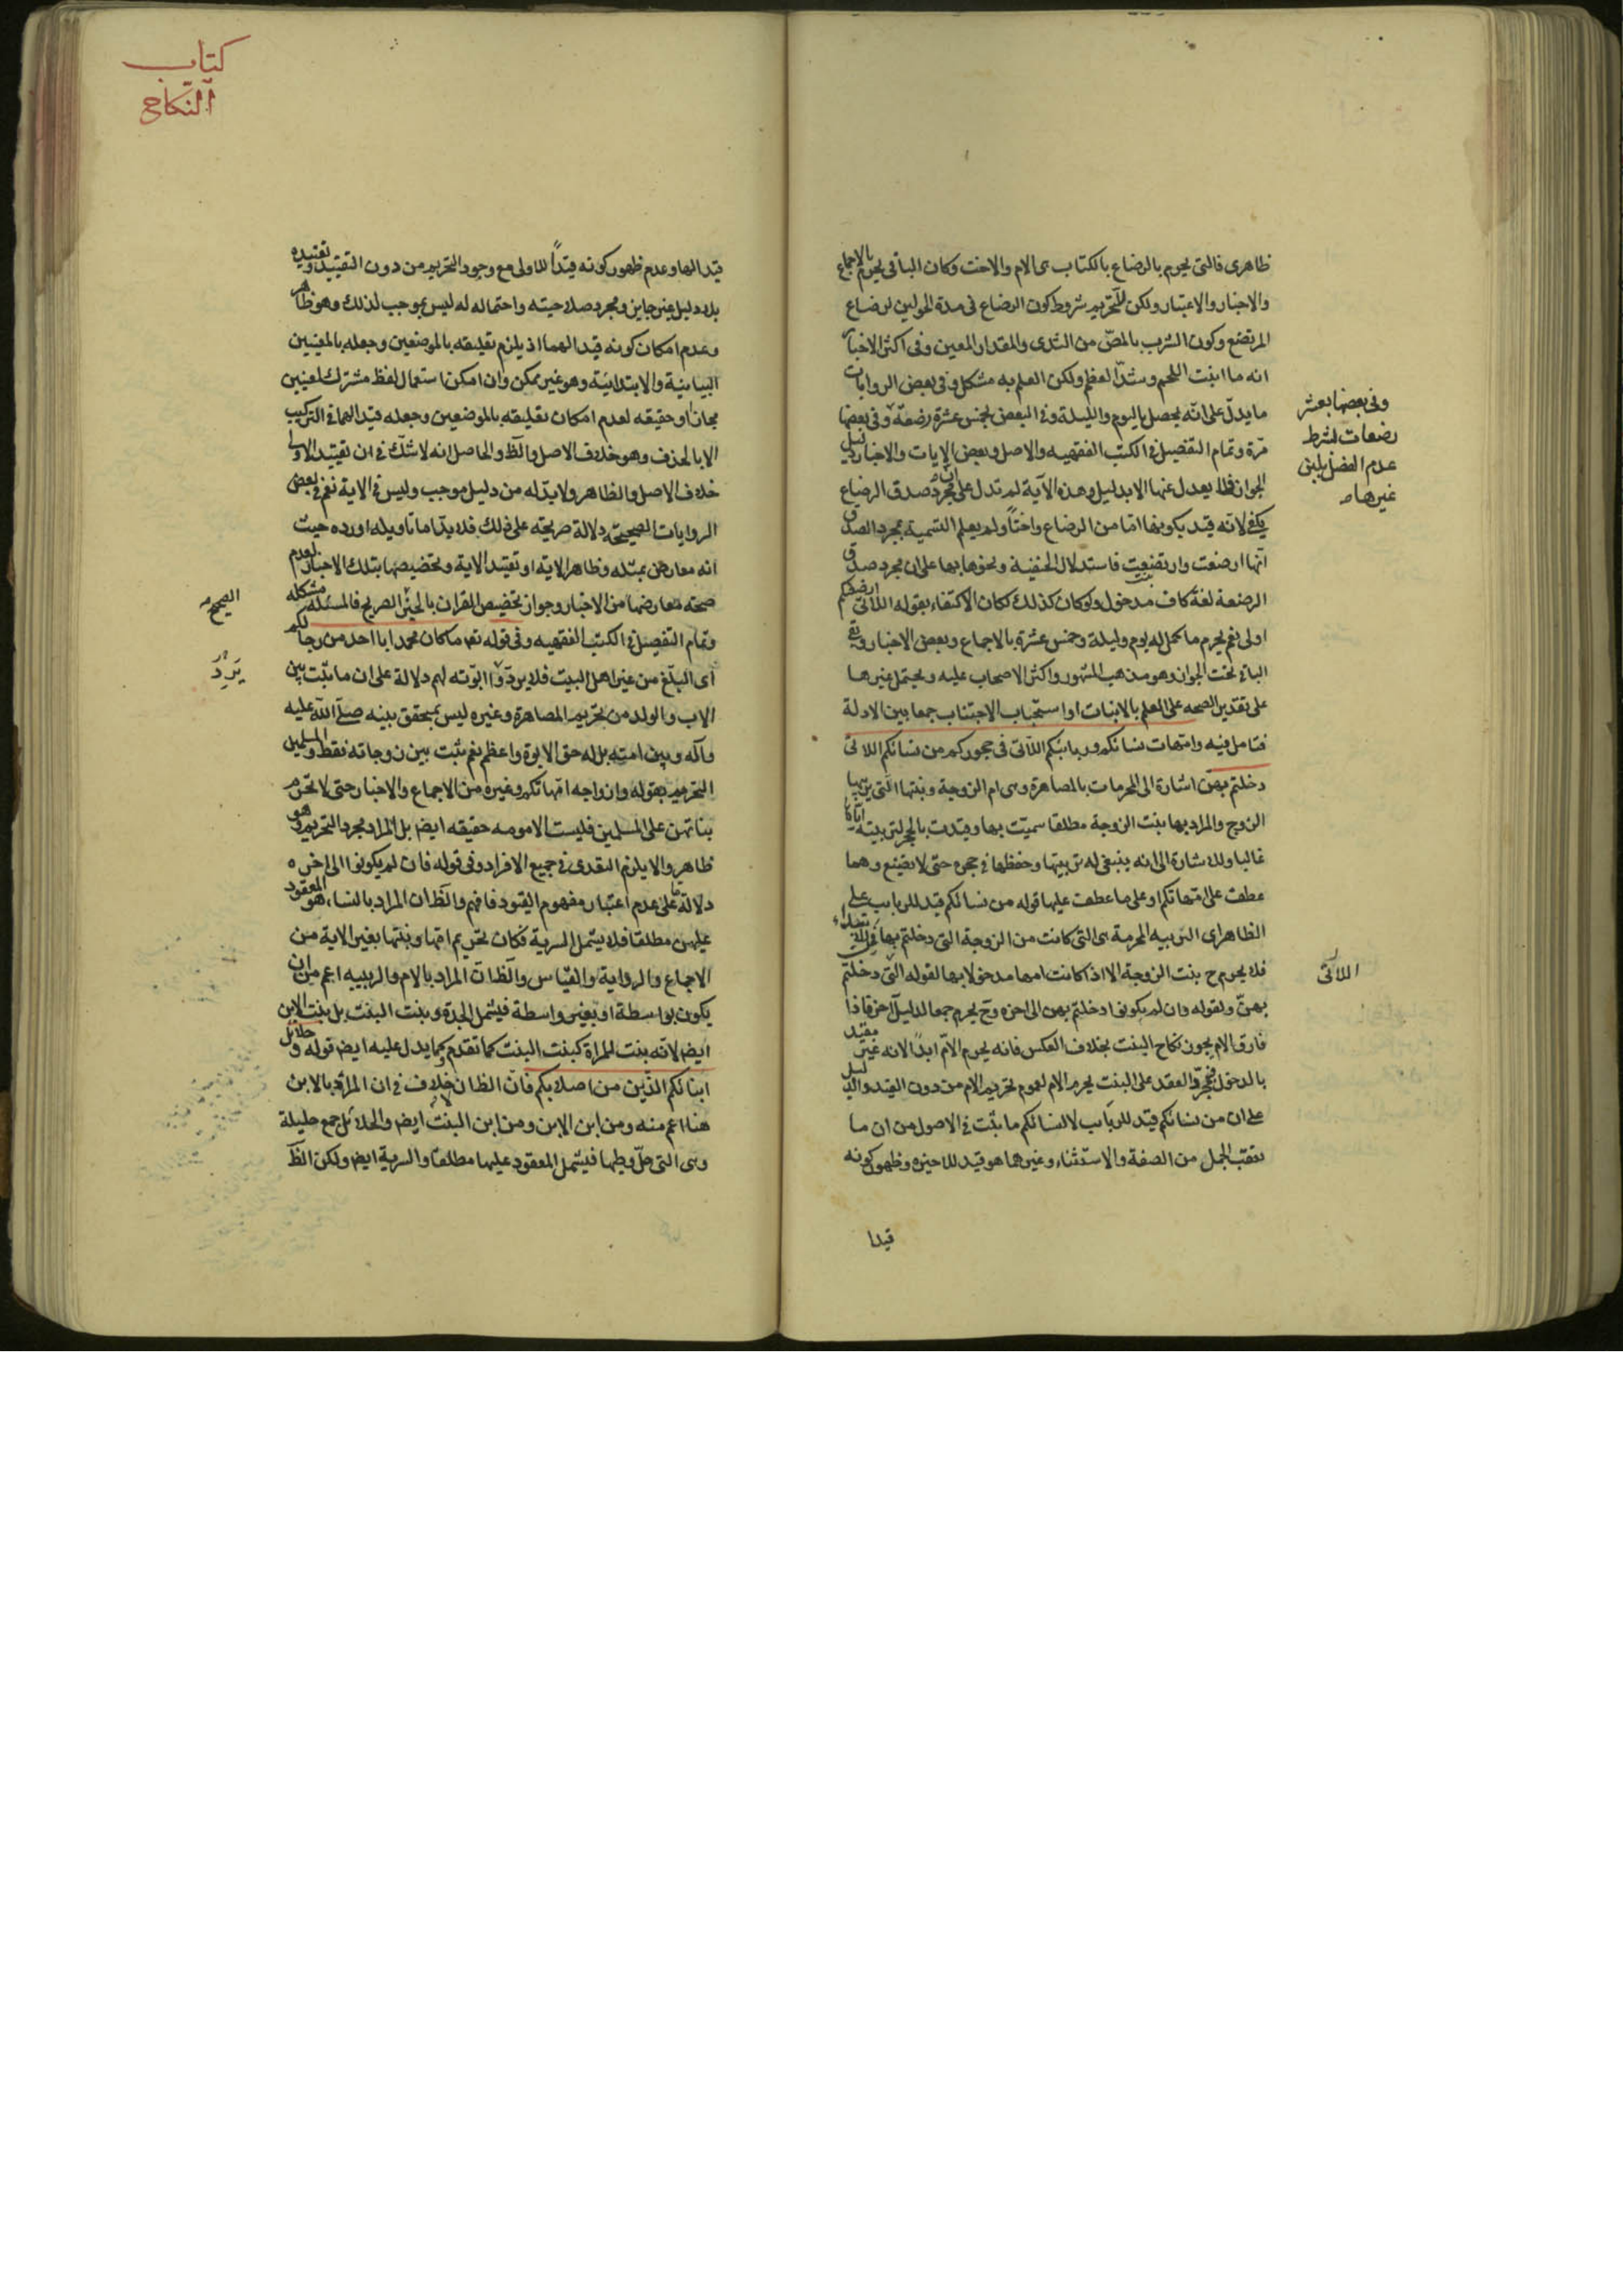 ظاهرى فالتى يحرم بالرضاع بالكتاب هى الام والاخت وكان الباقى يحرم بالاجماع
والاخبار والاعتبار ولكن للتحريم شروط كون الرضاع فى مدة الحولين لرضاع
المرتضع وكون الشرب بالمصّ من الثدى والمقدار المعين وفى اكثر الاخبار
انه ما انبت اللحم وشدّ العظم ولكن العلم به مشكل وفى بعض الروايات
ما يدلّ على انّه يحصل باليوم والليلة وفى البعض بخمس عشرة رضعة وفى بعضها
وفى بعضها بعشر
رضعات بشرط
عدم الفصل بلبن
غيرها
مرّة وتمام التفصيل فى الكتب الفقهيه والاصل وبعض الايات والاخبار دليل
الجواز فلا يعدل عنها الا بدليل وهذه الآية لم تدل على ان مجرد صدق الرضاع
يكفى لانه قيد بكونها امّا من الرضاع واختاً ولم يعلم التسمية بمجرد الصدق
انّها ارضعت وارتضعت فاستدلال الحنفية ونحوها بها على ان مجرد صدق
الرضعة لغة كاف مدخول ولو كان كذلك لكان الاكتفاء بقوله اللاتى ارضعنكم
اولى نعم يحرم ما كمل له يوم وليلة وخمس عشرة بالاجماع وبعض الاخبار وبقى
الباقى تحت الجواز وهو مذهب المشهور واكثر الاصحاب عليه ويحتمل غيرها
على تقدير الصحه على العلم بالانبات او استحباب الاجتناب جمعا بين الادلة
فتامل فيه وامهات نسائكم وربائبكم اللاتى فى حجوركم من نسائكم اللاتى
دخلتم بهن اشارة الى المحرمات بالمصاهرة وهى ام الزوجة وبنتها التى يربّيها
الزوج والمراد بها بنت الزوجة مطلقا سميّت بها وقيدت بالحجر لتربيته اياها
غالبا وللاشارة الى انه ينبغى له تربيتها وحفظها فى حجره حتى لا تضيع وهما
عطف على امهاتكم او على ما عطف عليها قوله من نسائكم قيد للربايب على
الظاهر اى الربيبه المحرمة هى التى كانت من الزوجة التى دخلتم بها
فلا يحرم ح بنت الزوجة الا اذا كانت امها مدخولا بها لقوله التى دخلتم
اللاتى
بهنّ ولقوله وان لم يكونوا دخلتم بهن الى اخره وح يحرم جمعا لدليل آخر فاذا
فارق الام يجوز نكاح البنت بخلاف العكس فانه يحرم الامّ ابدًا لانه غير مقيد
بالدخول فبمجرد العقد على البنت يحرم الام لعموم تحريم الام من دون القيد والدليل
على ان من نسائكم قيد للربايب لا لنسائكم ما ثبت فى الاصول من ان ما
تعقب الجمل من الصفة والاستثناء وغيرها هو قيد للاخيرة وظهور كونه
قيدا
كتاب
النّكاح
قيدا لها وعدم ظهور كونه قيداً للاولى مع وجود التحريم من دون التقييد وتقييده
بلا دليل غير جايز ومجرد صلاحيته واحتماله له ليس بموجب لذلك وهو ظاهر
وعدم امكان كونه قيدا لهما اذ يلزم تعليقه بالموضعين وجعله بالمعنيين
البيانية والابتدائية وهو غير ممكن وان امكن استعمال لفظ مشترك لمعنيين
مجازا او حقيقه لعدم امكان تعليقه بالموضعين وجعله قيدا لهما فى التركيب
الا بالحذف وهو خلاف الاصل والظّ والحاصل انه لا شكّ فى ان تقييد الاولى
خلاف الاصل والظاهر ولا بدّ له من دليل موجب وليس فى الاية نعم فى بعض
الروايات الصحيحة دلالة صريحة على ذلك فلا بد اما تاويله او رده حيث
انه معارض بمثله وظاهر الاية او تقييد الاية وتخصيصها بتلك الاخبار لعدم
صحة معارضها من الاخبار وجواز تخصيص القران بالخبر الصريح فالمسئلة مشكله
الصحيح
وتمام التفصيل فى الكتب الفقهيه وفى قوله تعه ما كان محمد ابا احد من رجالكم
اى البلّغ من غير اهل البيت فلا يرد ابوّته لهم دلالة على ان ما يثبت بين
يَرِدُ
الاب والولد من تحريم المصاهرة وغيره ليس بمتحقق بينه صلّى اللّه عليه
وآله وبين امته بل له حق الابوة واعظم نعم يثبت بين زوجاته فقط والمسلمين
التحريم بقوله وازواجه امّهاتكم وغيره من الاجماع والاخبار حتى لا تحرم
بناتهن على المسلمين فليست الامومه حقيقه ايض بل المراد مجرد التحريم وهو
ظاهر والا يلزم التعدى فى جميع الافراد وفى قوله فان لم يكونوا الى اخره
دلالة ما على عدم اعتبار مفهوم القيود فافهم والظّ ان المراد بالنساء هو المعقود
عليهن مطلقا فلا يشمل السرية فكان تحريم امّها وبنتها بغير الاية من
الاجماع والرواية والقياس والظّ ان المراد بالام والربيبه اعم من ان
يكون بواسطة او بغير واسطة فيشمل الجدة وبنت البنت بل بنت الابن
ايض لانه بنت المراة كبنت البنت كما تقدم وكما يدل عليه ايض قوله وحلائل
ابنائكم الّذين من اصلابكم فان الظّ ان لا خلاف فى ان المراد بالابن
هنا اعم منه ومن ابن الابن ومن ابن البنت ايض والحلائل جمع حليلة
وهى التى حلّ وطيها فيشمل المعقود عليها مطلقاً والسرية ايض ولكن الظّ